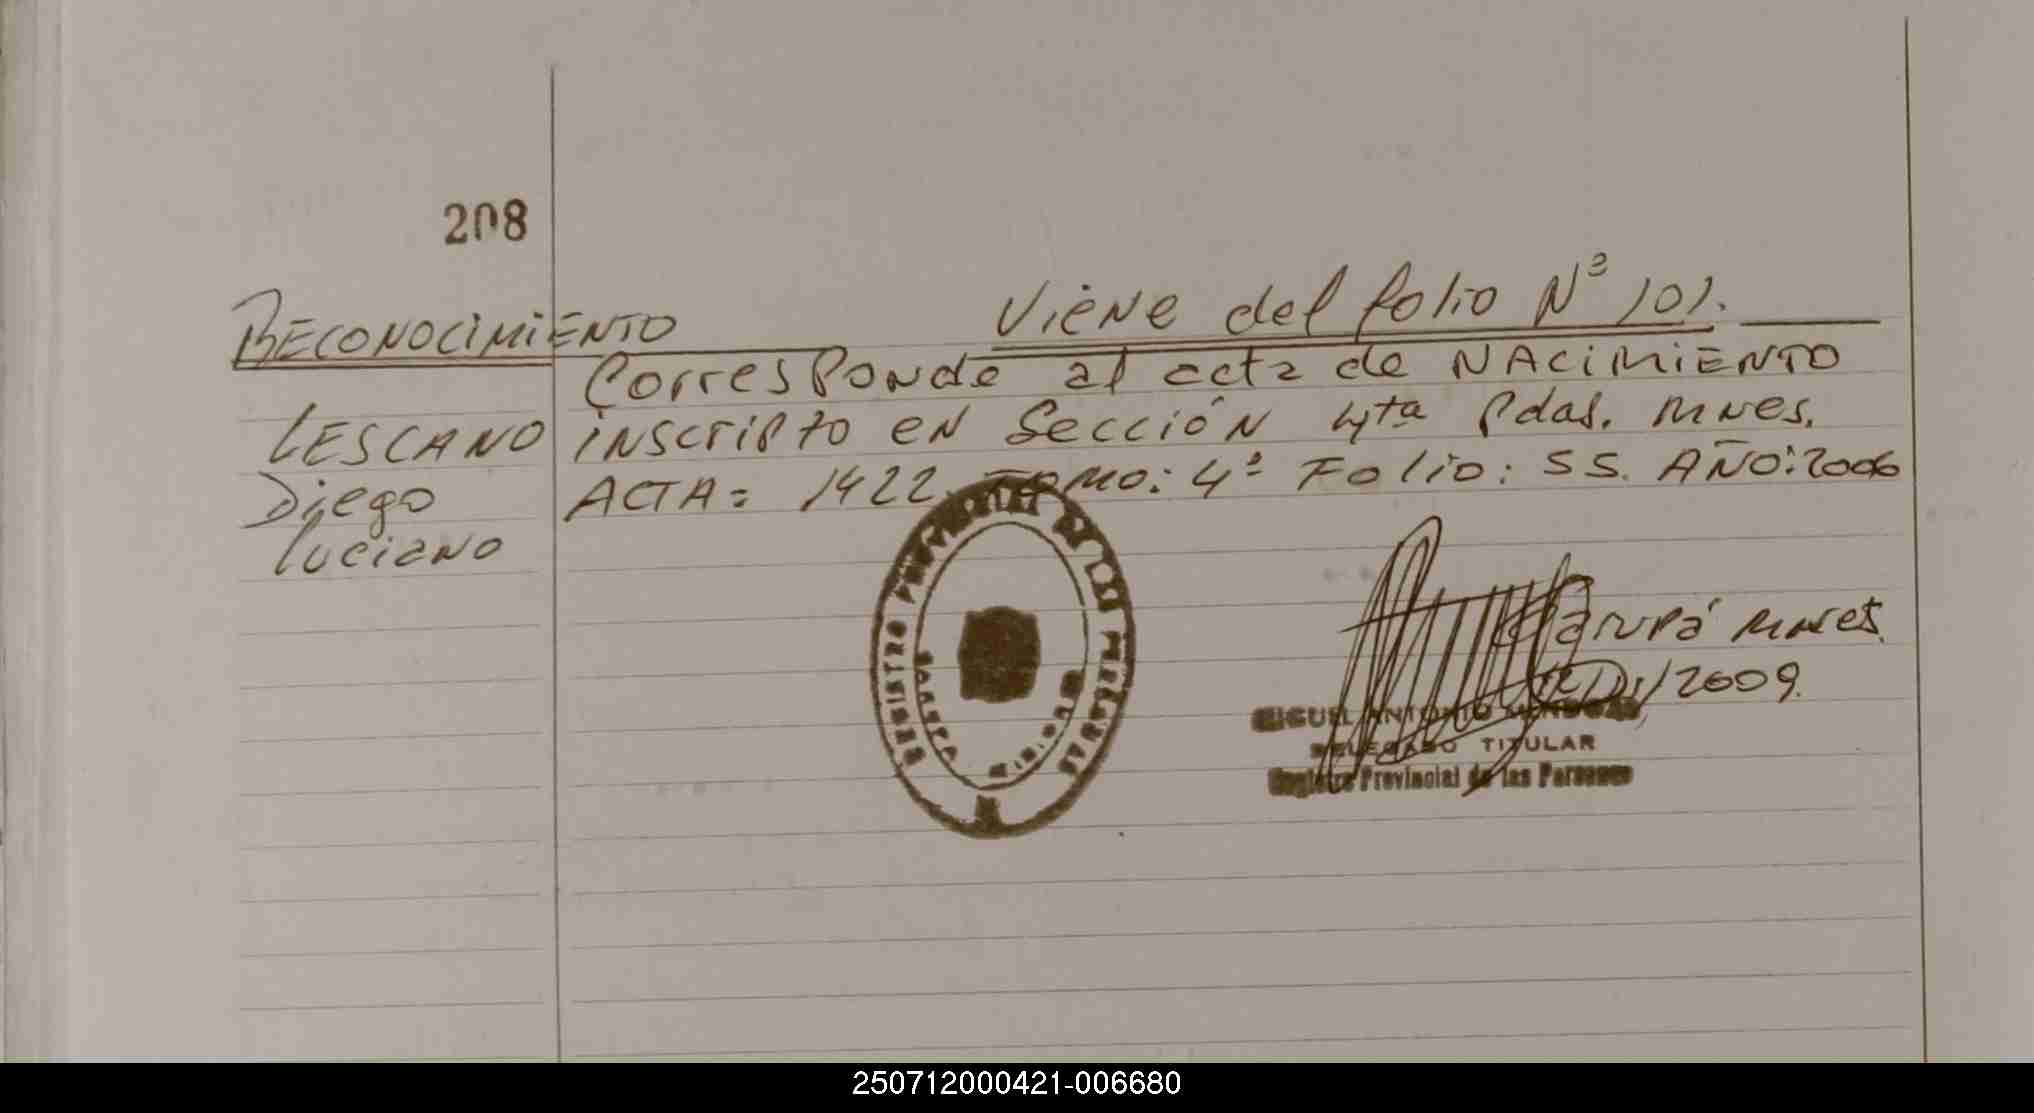 208
RECONOCIMIENTO
Viene del folio Nº 101.
Corresponde al acta de NACIMIENTO
LESCANO
inscripto en Sección 4ta Pdas. Mnes.
Diego
ACTA: 1422. Tomo: 4º Folio: 55. AÑO: 2006
Luciano
Garupá Mnes.
/2009.
MIGUEL ANTONIO
DELEGADO TITULAR
Registro Provincial de las Personas
REGISTRO PROVINCIAL DE LAS PERSONAS
250712000421-006680